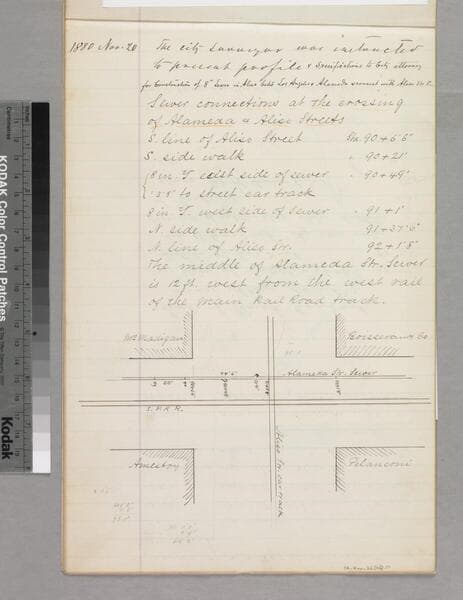 1880 Nov. 20 The city surveyor was instructed
to present profile & Specifications to City attorney
for Construction of 8" Sewer in Aliso Street Los Angeles Alameda connect with Aliso St.
Sewer connections at the crossing
of Alameda & Aliso Streets
S. line of Aliso Street Sta. 90 + 6'6"
S. side walk " 90 + 21'
8 in. Y. east side of sewer " 90 + 49'
to street car track
8 in. Y. west side of sewer " 91 + 1'
N. side walk 91 + 37'6"
N. line of Aliso Str. 92 + 1'8"
The middle of Alameda Str. Sewer
is 12 ft. west from the west rail
of the main Rail Road track.
Mrs Madigan
Alameda Str. Sewer
S. P. R. R.
Aliso Str. car track
Amestoy
Pelanconi
KODAK Color Control Patches
Kodak
Centimetres
Inches